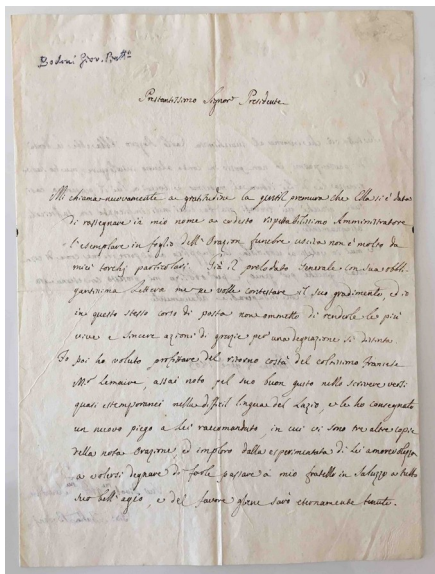 Bodoni Giov. Batt.a
Prestantissimo Signor Presidente
Mi chiama nuovamente a gratitudine la gentil premura che Ella si è data
di rassegnare in mio nome a codesto rispettabilissimo Amministratore
l'esemplare in foglio dell'Orazion funebre uscita non è molto da
miei torchj particolari. Già il prelodato Generale con sua obbli-
gantissima Lettera me ne volle contestare il suo gradimento, ed io
in questo stesso corso di posta non ommetto di renderle le più
vive e sincere azioni di grazie per una degnazione sì distinta.
Io poi ho voluto profittare del ritorno costà del coltissimo Francese
M.r Lemaire, assai noto pel suo buon gusto nello scrivere versi
quasi estemporanei nella difficil lingua del Lazio, e le ho consegnato
un nuovo piego a Lei raccomandato, in cui vi sono tre altre copie
della nota Orazione, ed imploro dalla esperimentata di Lei amorevolezza
a volersi degnare di farle passare a mio fratello in Saluzzo a tutto
suo bell'agio, e del favore gliene sarò eternamente tenuto.